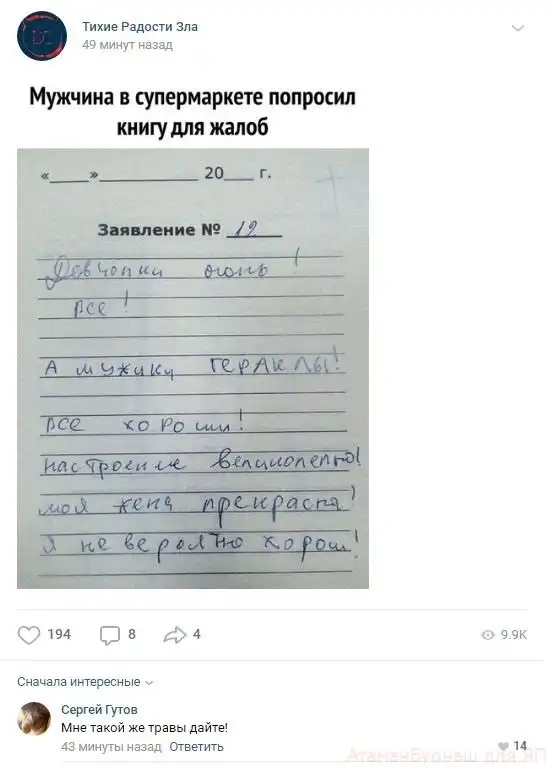 Тихие Радости Зла
49 минут назад
Мужчина в супермаркете попросил
книгу для жалоб
«___»__________ 20___ г.
Заявление № 19
Девчонки огонь!
все!
А мужики ГЕРАКЛЫ!
все хороши!
настроение великолепно!
моя жена прекрасна!
Я не вероятно хорош!
194
8
4
9.9K
Сначала интересные
Сергей Гутов
Мне такой же травы дайте!
43 минуты назад Ответить
14
АтаманБуонаш для ЯП